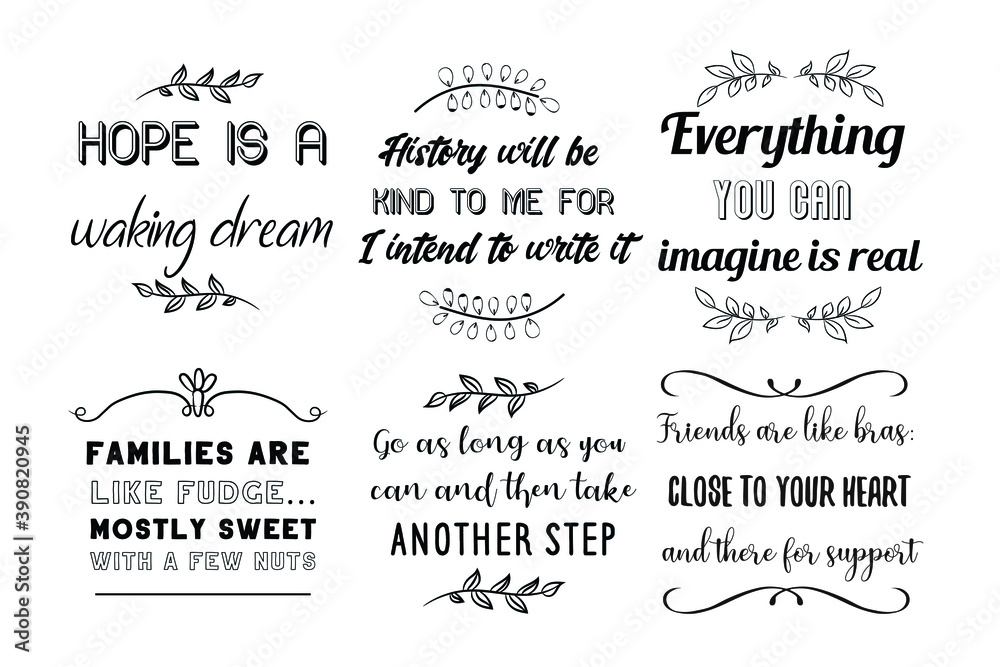 HOPE IS A
waking dream
History will be
KIND TO ME FOR
I intend to write it
Everything
YOU CAN
imagine is real
FAMILIES ARE
LIKE FUDGE...
MOSTLY SWEET
WITH A FEW NUTS
Go as long as you
can and then take
ANOTHER STEP
Friends are like bras:
CLOSE TO YOUR HEART
and there for support
Adobe Stock | #390820945